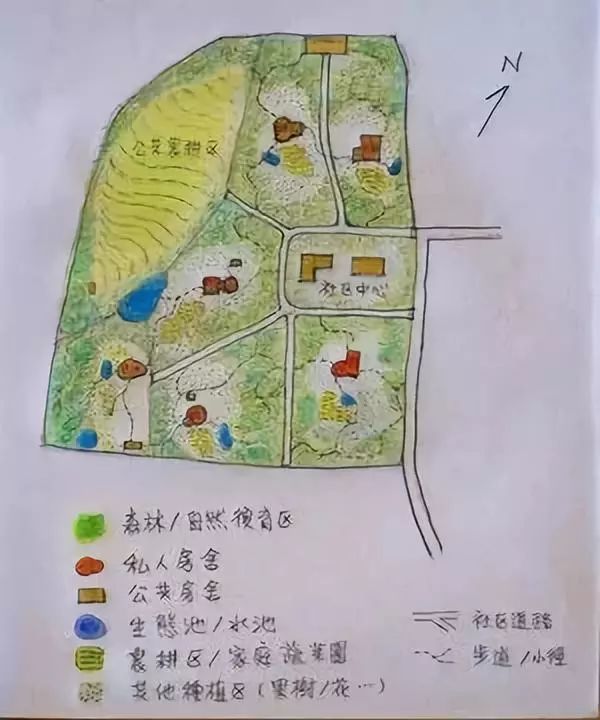 N
公共農耕区
社区中心
森林/自然積育区
私人房舍
公共房舍
生態池/水池
農耕区/家庭蔬菜園
其他種植区(果樹/花…)
社区道路
步道/小徑